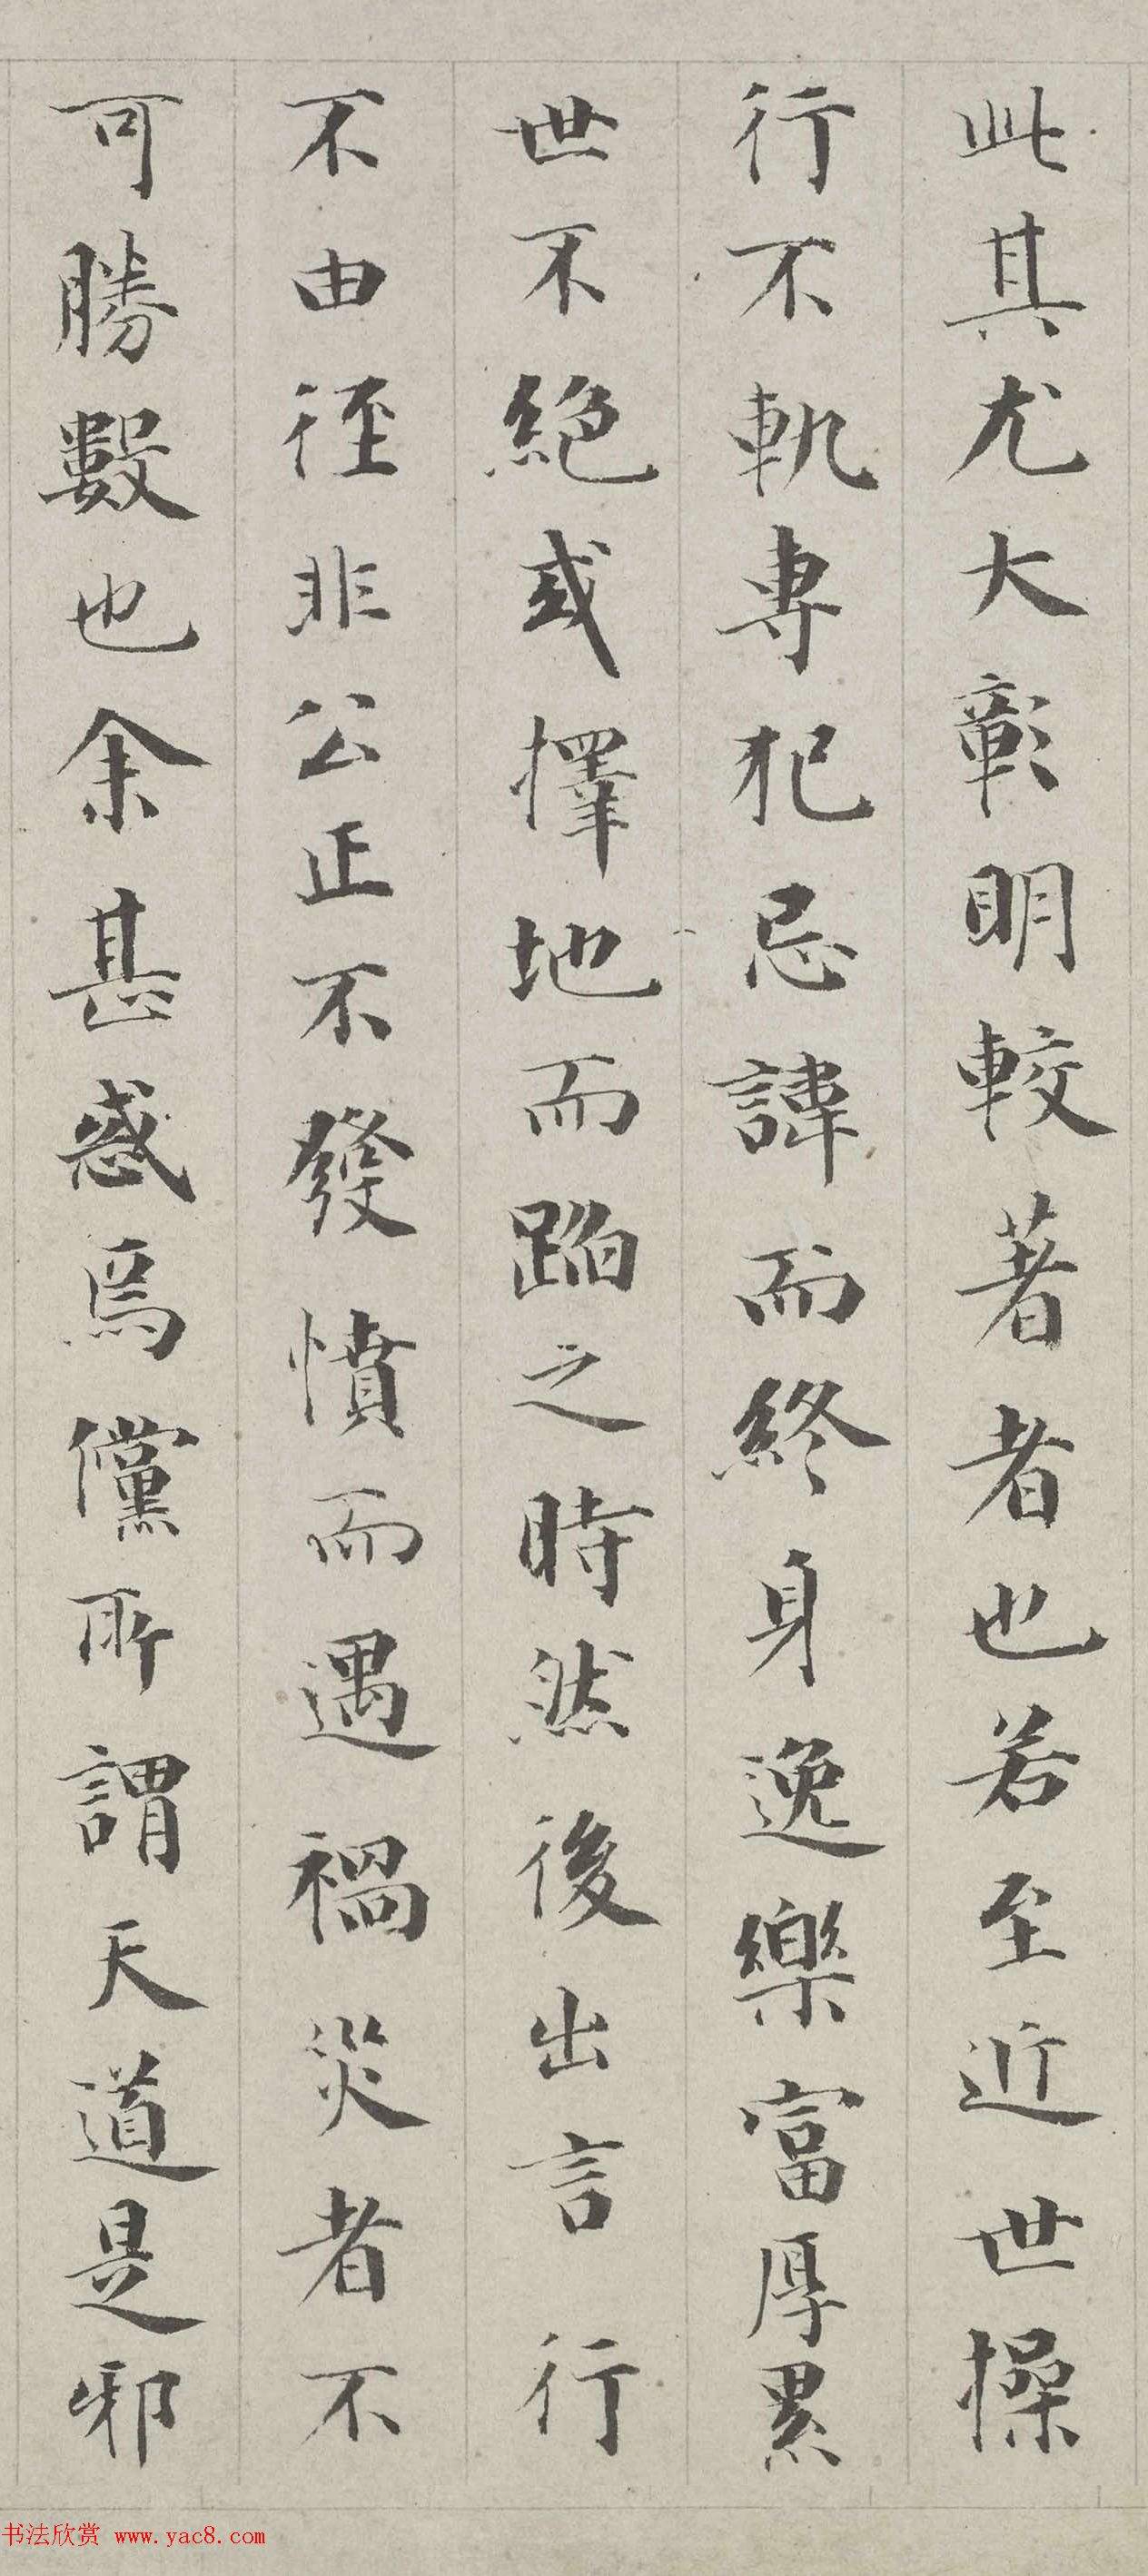 此其尤大彰明較著者也若至近世操
行不軌專犯忌諱而終身逸樂富厚累
世不絕或擇地而蹈之時然後出言行
不由徑非公正不發憤而遇禍災者不
可勝數也余甚惑焉儻所謂天道是邪
书法欣赏 www.yac8.com